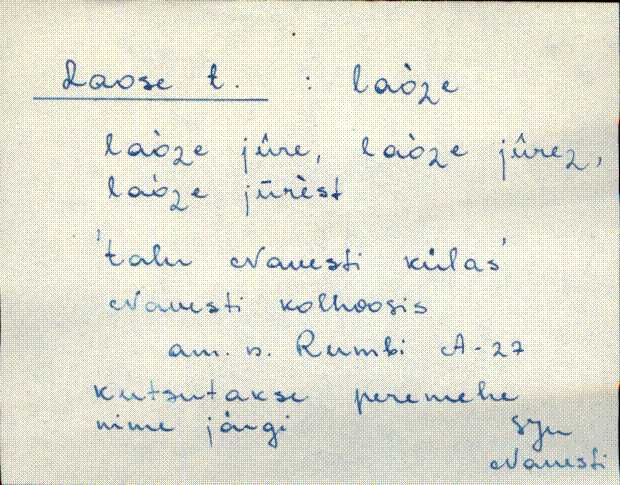 Laose t. : laòze
laòze jûre, laòze jûrez,
laòze jūrèst
'talu Navesti külas'
Navesti kolhoosis
am. n. Rumbi A-27
kutsutakse peremehe
nime järgi
SJn
Navesti